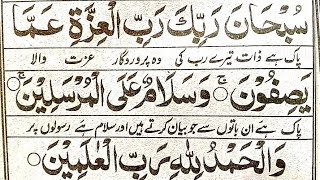 سُبْحَانَ رَبِّكَ رَبِّ الْعِزَّةِ عَمَّا
پاک ہے ذات تیرے رب کی وہ پروردگار عزت والا
يَصِفُوْنَ ۚ وَسَلَامٌ عَلَى الْمُرْسَلِيْنَ ۚ
پاک ہے ان باتوں سے جو بیان کرتے ہیں اور سلام ہے رسولوں پر
وَالْحَمْدُ لِلّٰهِ رَبِّ الْعٰلَمِيْنَ